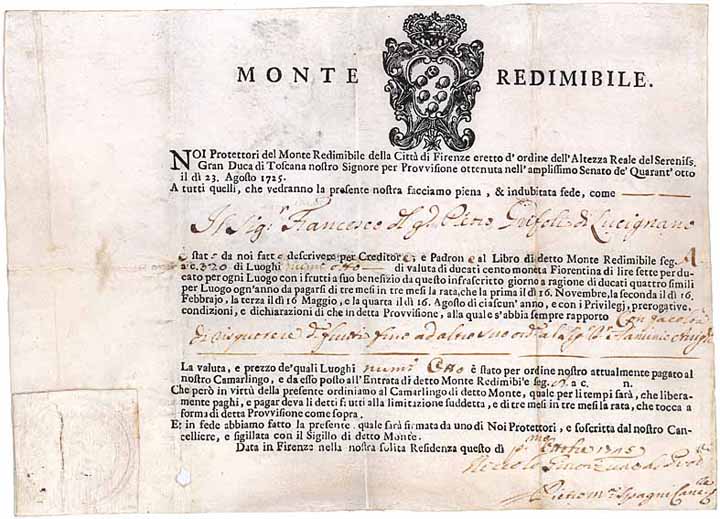 MONTE REDIMIBILE.
NOI Protettori del Monte Redimibile della Città di Firenze eretto d'ordine dell'Altezza Reale del Sereniss.
Gran Duca di Toscana nostro Signore per Provvisione ottenuta nell'amplissimo Senato de' Quarant'otto
il dì 23. Agosto 1725.
A tutti quelli, che vedranno la presente nostra facciamo piena, & indubitata fede, come
Il Sig.r Francesco di Lucignano
è stato da noi fatto descrivere per Creditore e Padron al Libro di detto Monte Redimibile seg. A
a c. 320 di Luoghi num.o otto di valuta di ducati cento moneta Fiorentina di lire sette per du-
cato per ogni Luogo con i frutti a suo benefizio da questo infrascritto giorno a ragione di ducati quattro simili
per Luogo ogn'anno da pagarsi di tre mesi in tre mesi la rata, che la prima il dì 16. Novembre, la seconda il dì 16.
Febbrajo, la terza il dì 16 Maggio, e la quarta il dì 16. Agosto di ciascun'anno, e con i Privilegj, prerogative,
condizioni, e dichiarazioni di che in detta Provvisione, alla quale s'abbia sempre rapporto Con facoltà
di riscuotere i frutti fino ad altro suo ord.
La valuta, e prezzo de' quali Luoghi num.o Otto è stato per ordine nostro attualmente pagato al
nostro Camarlingo, e da esso posto all'Entrata di detto Monte Redimibile seg. a c. n.
Che però in virtù della presente ordiniamo al Camarlingo di detto Monte, quale per li tempi sarà, che libera-
mente paghi, e pagar deva li detti frutti alla limitazione suddetta, e di tre mesi in tre mesi la rata, che tocca a
forma di detta Provvisione come sopra.
E; in fede abbiamo fatto la presente, qual sarà firmata da uno di Noi Protettori, e soscritta dal nostro Can-
celliere, e sigillata con il Sigillo di detto Monte.
Data in Firenze nella nostra solita Residenza questo dì